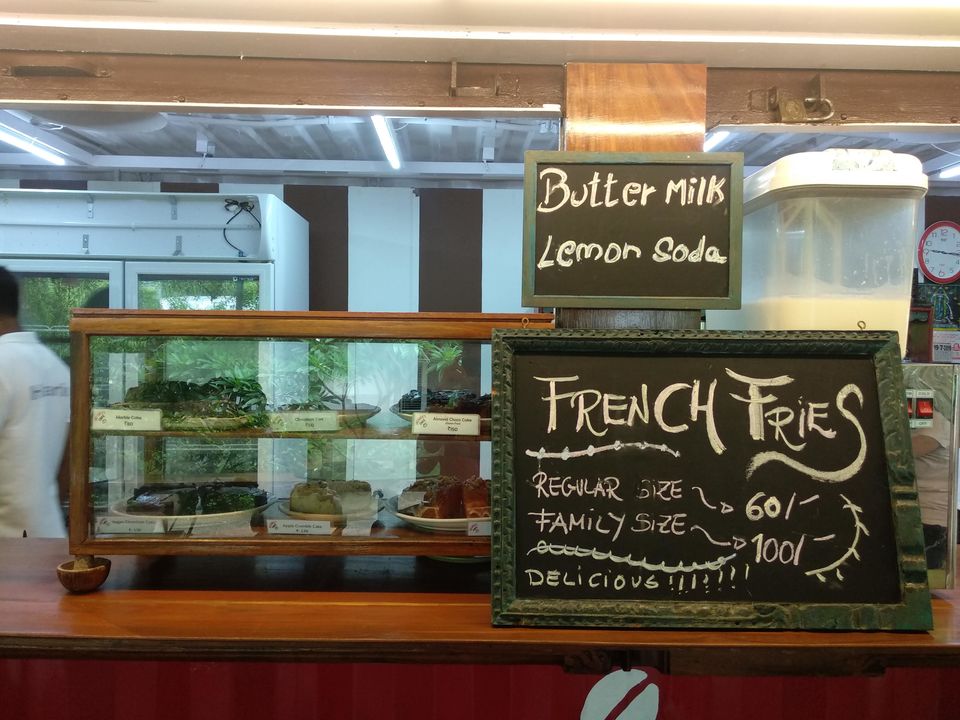 Butter Milk
Lemon Soda
FRENCH FRIES
REGULAR SIZE 60/-
FAMILY SIZE 100/-
DELICIOUS !!!!!!!
Marble Cake
Almond Choco Cake
₹150
Vegan Chocolate Cake
Apple Crumble Cake